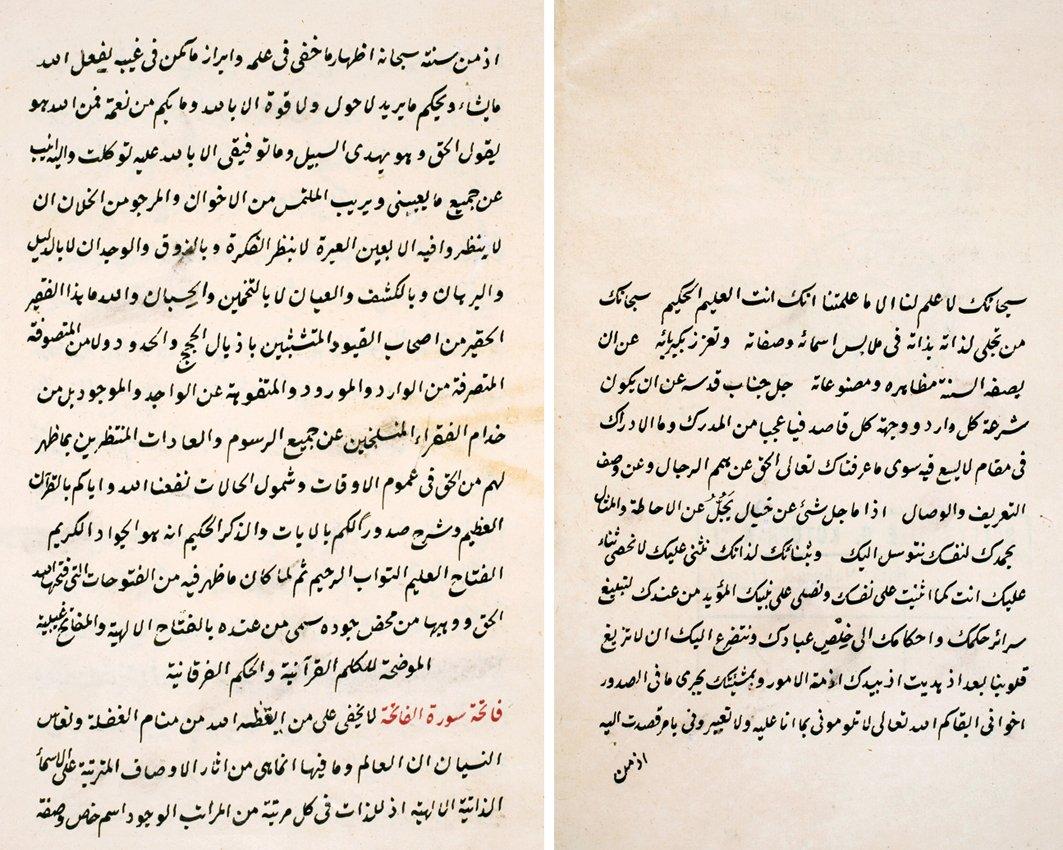 سبحانك لا علم لنا الا ما علمتنا انك انت العليم الحكيم سبحانك
من تجلى لذاته بذاته فى ملابس اسمائه وصفاته وتعزز بكبريائه عن ان
يصفه السنة مظاهره ومصنوعاته جل جناب قدسه عن ان يكون
شرعة كل وارد ووجهة كل قاصد فيا عجبا من المدرك وما الادراك
فى مقام لا يسع فيه سوى ما عرفناك تعالى الحق عن همم الرجال وعن وصف
التعريف والوصال اذا ما جل شئ عن خيال يجل عن الاحاطة والمثال
بحمدك لنفسك نتوسل اليك وبثنائك لذاتك نثنى عليك لا نحصى ثناء
عليك انت كما اثنيت على نفسك ونصلى على نبيك المؤيد من عندك لتبليغ
سرائر حكمك واحكامك الى خلص عبادك ونتضرع اليك ان لا تزيغ
قلوبنا بعد اذ هديت اذ بيدك ازمة الامور وبمشيتك يجرى ما فى الصدور
اخوانى ابقاكم الله تعالى لا تلومونى بما انا عليه ولا تعيرونى بامر قصدت اليه
اذ من
اذ من سنته سبحانه اظهار ما خفى فى علمه وابراز ما كمن فى غيب يفعل الله
ما يشاء ويحكم ما يريد لا حول ولا قوة الا بالله وما بكم من نعمة فمن الله هو
يقول الحق وهو يهدى السبيل وما توفيقى الا بالله عليه توكلت واليه انيب
عن جميع ما يعيبنى ويريب الملتمس من الاخوان والمرجو من الخلان ان
لا ينظروا فيه الا بعين العبرة لا بنظر الفكرة وبالذوق والوجدان لا بالدليل
والبرهان وبالكشف والعيان لا بالتخمين والحسبان والله ما هذا الفقير
الحقير من اصحاب القيود المتشبثين باذيال الحجج والحدود ولا من المتصوفة
المتصرفة من الوارد والمورود والمتفوهة عن الواجد والموجود بل من
خدام الفقراء المنسلخين عن جميع الرسوم والعادات المنتظرين بما ظهر
لهم من الحق فى عموم الاوقات وشمول الحالات نفعنا الله واياكم بالقرآن
العظيم وشرح صدورنا لكم بالايات والذكر الحكيم انه هو الجواد الكريم
الفتاح العليم التواب الرحيم ثم لما كان ما ظهر فيه من الفتوحات التى فتحها الله
الحق ووهبها من محض جوده سمى من عنده بالفتاح الالهية والمفاتح الغيبية
الموضحة للكلم القرآنية والحكم الفرقانية
فاتحة سورة الفاتحة لا يخفى على من ايقظه الله من منام الغفلة ونعاس
النسيان ان العالم وما فيها انما هى من اثار الاوصاف المترتبة على الاسماء
الذاتية الالهية اذ للذات فى كل مرتبة من المراتب الوجود اسم خاص وصفة